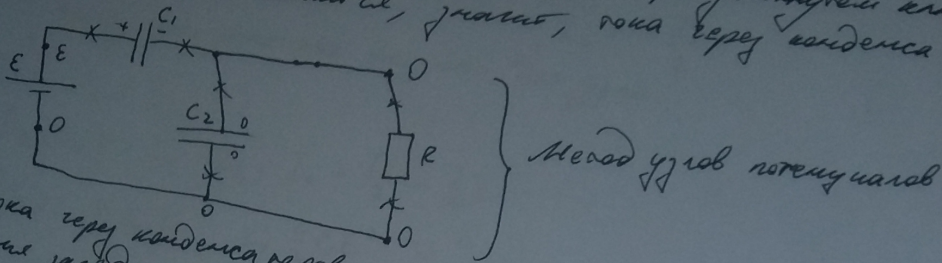 значит, тока через конденса
ε ε + C₁ -
0
C₂ 0
0
0
R
0
0
Метод узлов потенциалов
ка через конденса